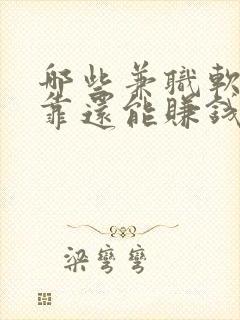 哪些兼職軟
靠還能賺錢
梁彎彎